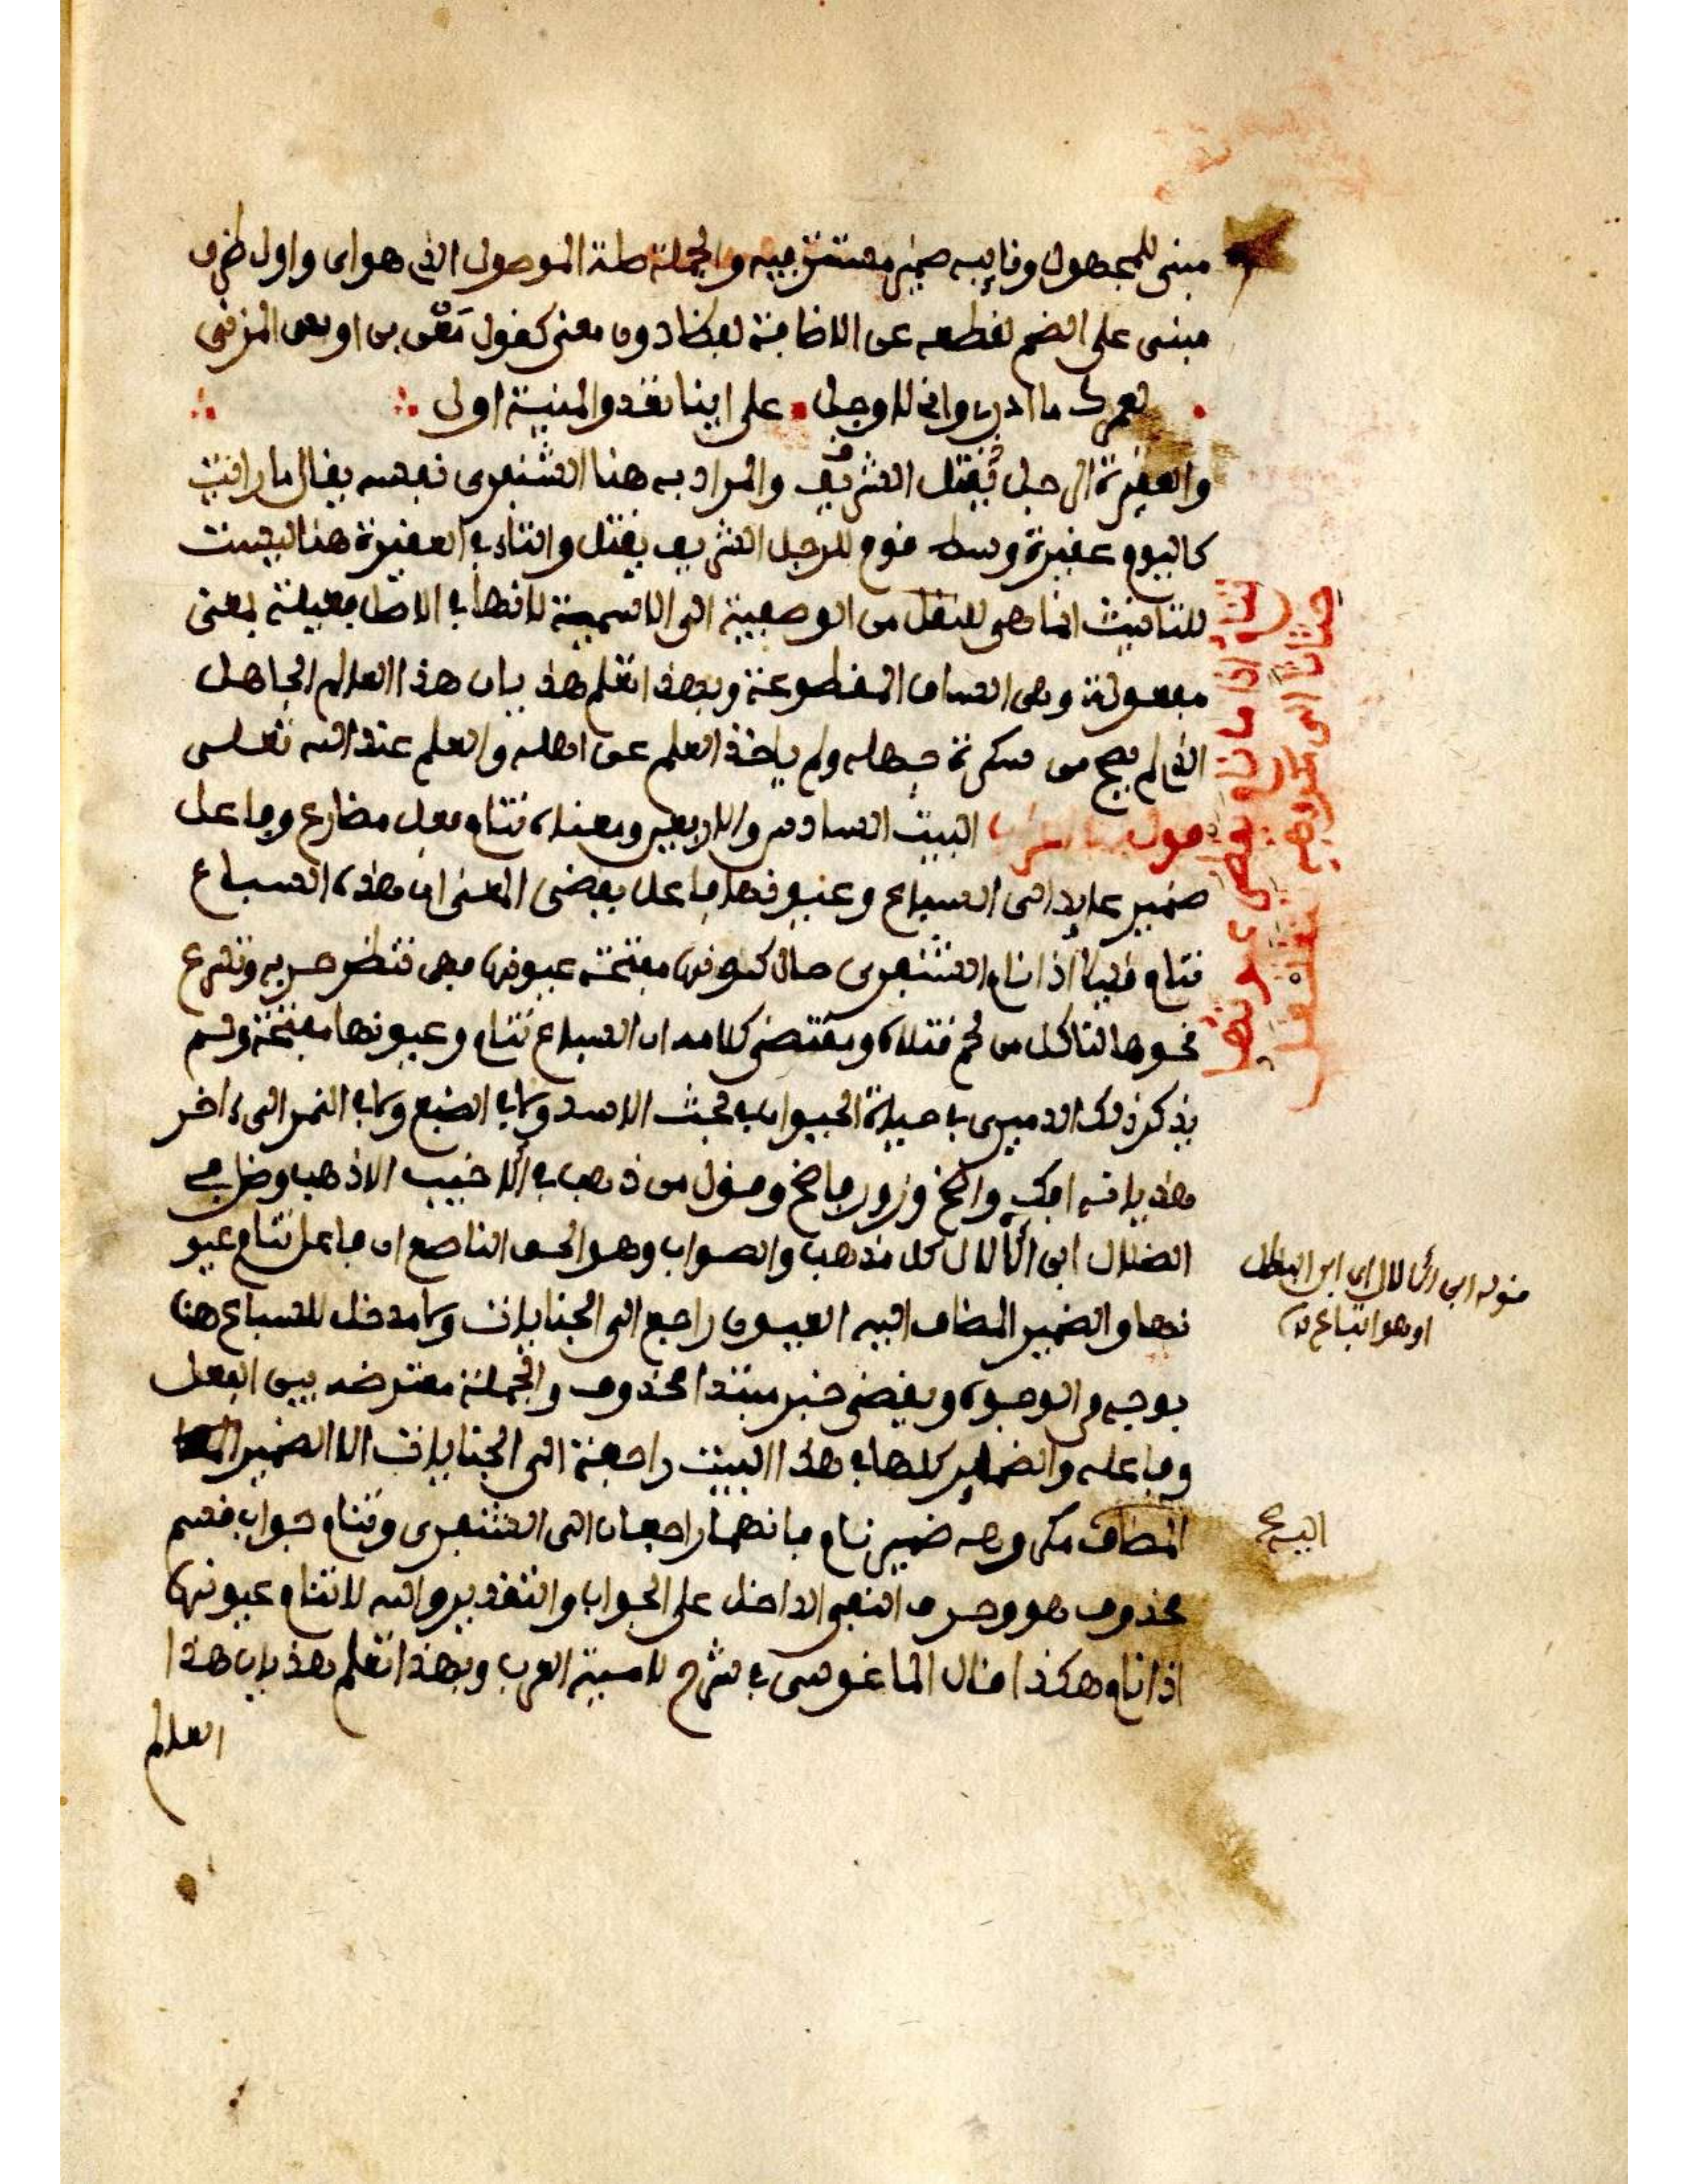 مبني للمجهول ونايبه ضمير مستتر فيه والجملة صلة الموصول الذي هو اي واول ظرف
مبني على الضم لقطعه عن الاضافة لفظا دون معنى كقول معن بن اوس المزني
لعمرك ما ادري واني لاوجل على اينا تغدو المنية اول
والعقيرة الرجل يُقتل الشريف والمراد به هنا الشنفرى نفسه يقال ما رايت
كاليوم عقيرة وسط قوم للرجل الشريف يقتل والتاء في العقيرة هنا ليست
للتانيث انما هي للنقل من الوصفية الى الاسمية لانها في الاصل فعيلة بمعنى
مفعولة وهي الساق المقطوعة وبهذا تعلم هذيان هذا العالم الجاهل
الذي لم يصح من سكرة جهله ولم ياخذ العلم عن اهله والعلم عند الله تعالى
البيت السادس والاربعين ومعناه تنام فعل مضارع وفاعل
ضمير عايد الى السباع وعيونها فاعل يقضى المعنى ان هذه السباع
تنام ظنيا اذا نام الشنفرى حال كونها مفتحة عيونها فهي تنظر حربه وتهرع
نحوها لتاكل من لحم قتلاه ومقتضى كلامه ان السباع تنام وعيونها مفتحة ولم
يذكر ذلك الدميري في حياة الحيوان في مبحث الاسد ولا في الضبع ولا في النمر الى ءاخر
هذيانه افك واضح وزور فاضح وقول من ذهب في ألا خيب الاذهب وضل في
الضلال ابن الألال كل مذهب والصواب وهو الحق الناصع ان فاعل تنام عيو
نها والضمير المضاف اليه العيون راجع الى الجنايات ولا مدخل للسباع هنا
بوجه من الوجوه ويقضى خبر مبتدا محذوف والجملة معترضة بين الفعل
وفاعله والضماير كلها في هذا البيت راجعة الى الجنايات الا الضمير
المضاف مكروهه ضمير نام فانهما راجعان الى الشنفرى وتنام جواب قسم
محذوف هو وحرف النفي الداخل على الجواب والتقدير والله لا تنام عيونها
اذا نام هكذا قال الماغوسي في شرح لامية العرب وبهذا تعلم هذيان هذا
العالم
تنام اذا ما نام يقظى عيونها
حثاثا الى مكروهه تتغلغل
قوله ابن الألال اي ابن الباطل
او هو اتباع له
اليه صح